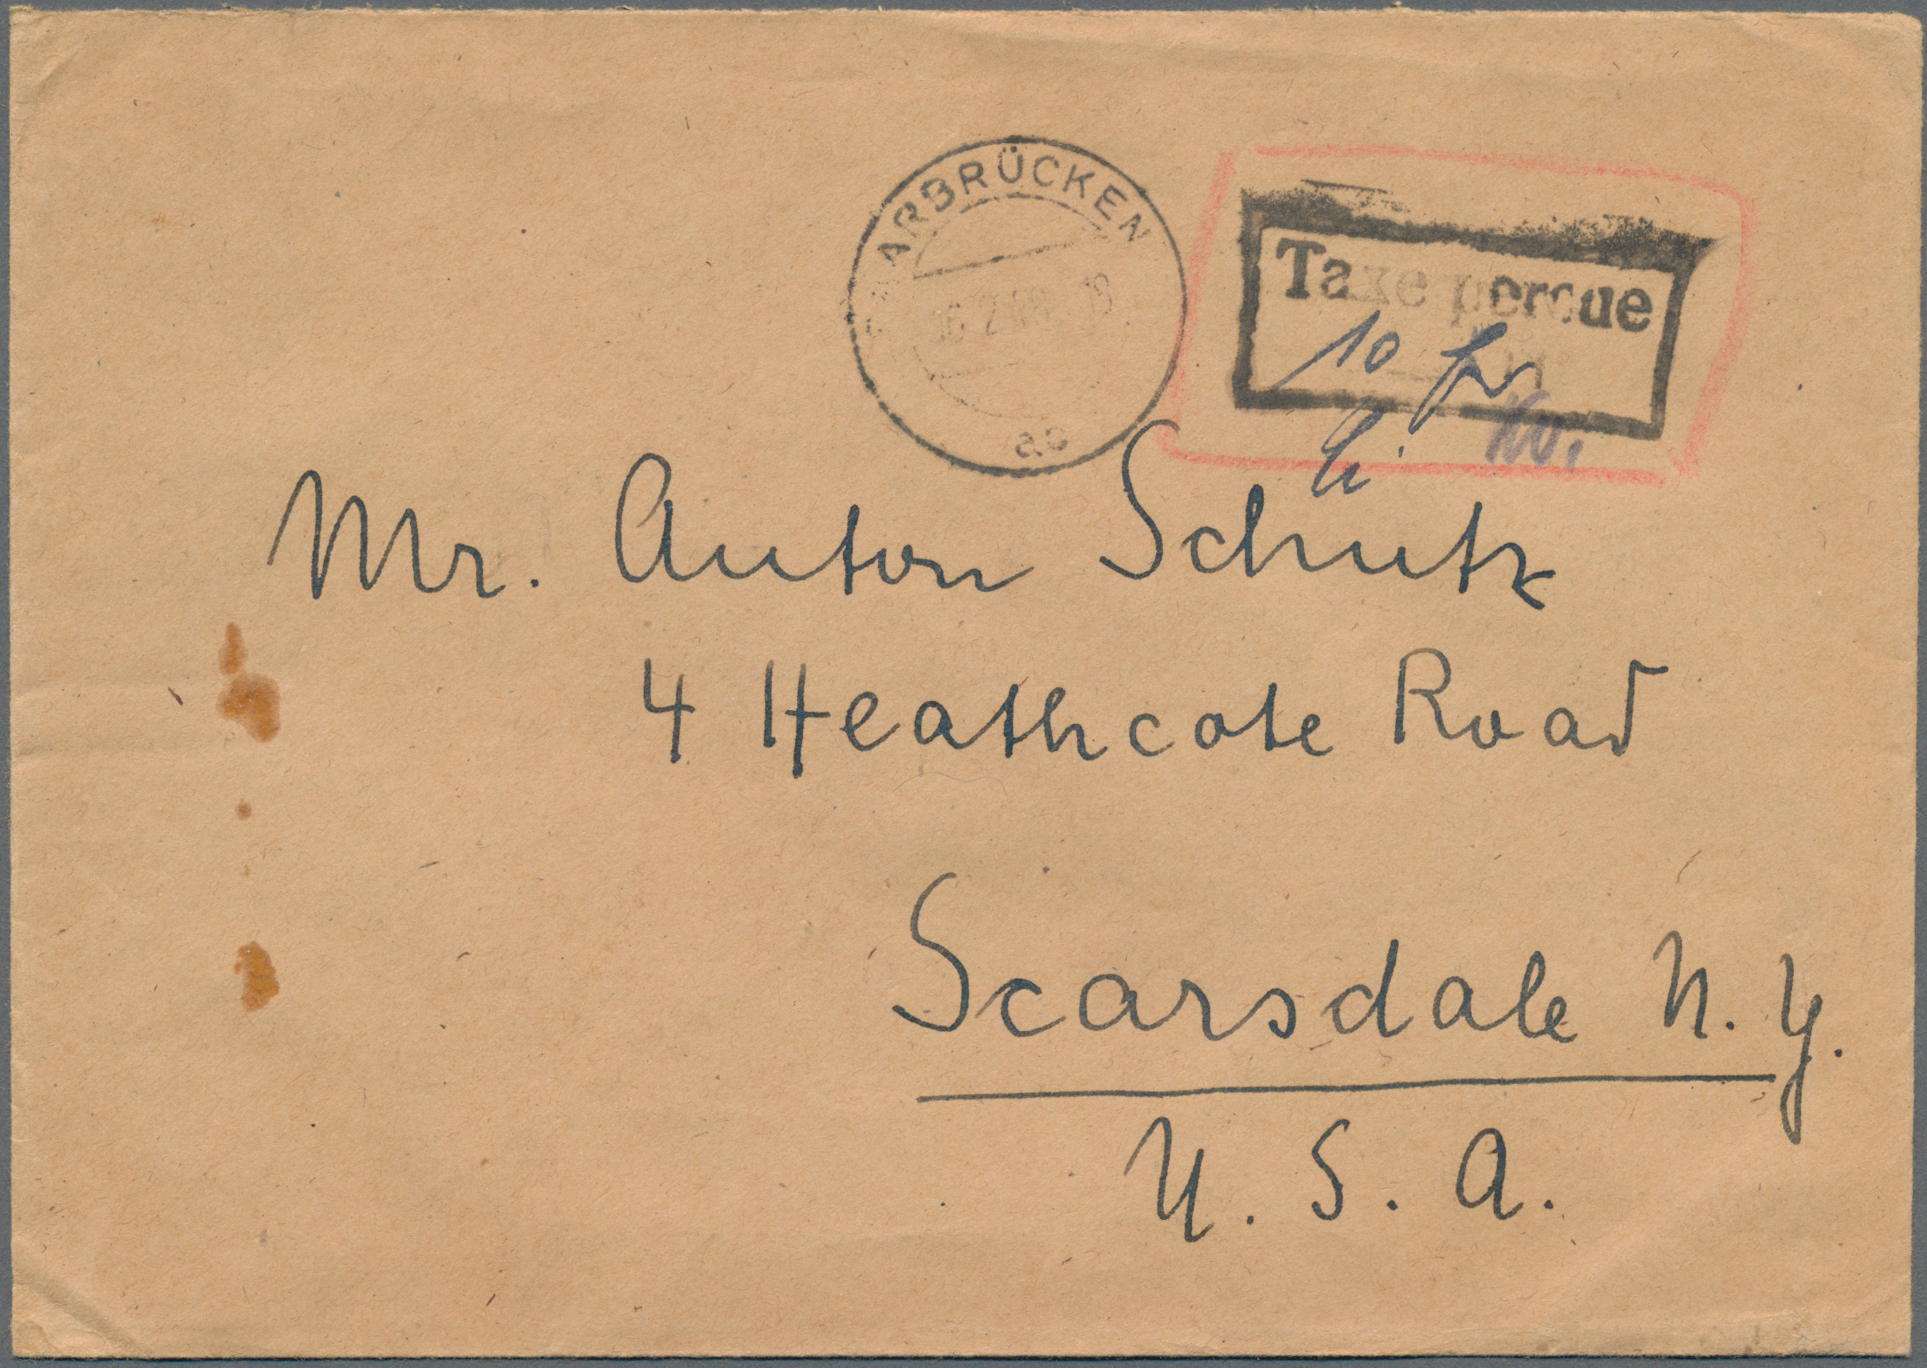 SAARBRÜCKEN
18
ac
Taxe percue
10 fr
Mr. Anton Schutz
4 Heathcote Road
Scarsdale N.Y.
U.S.A.